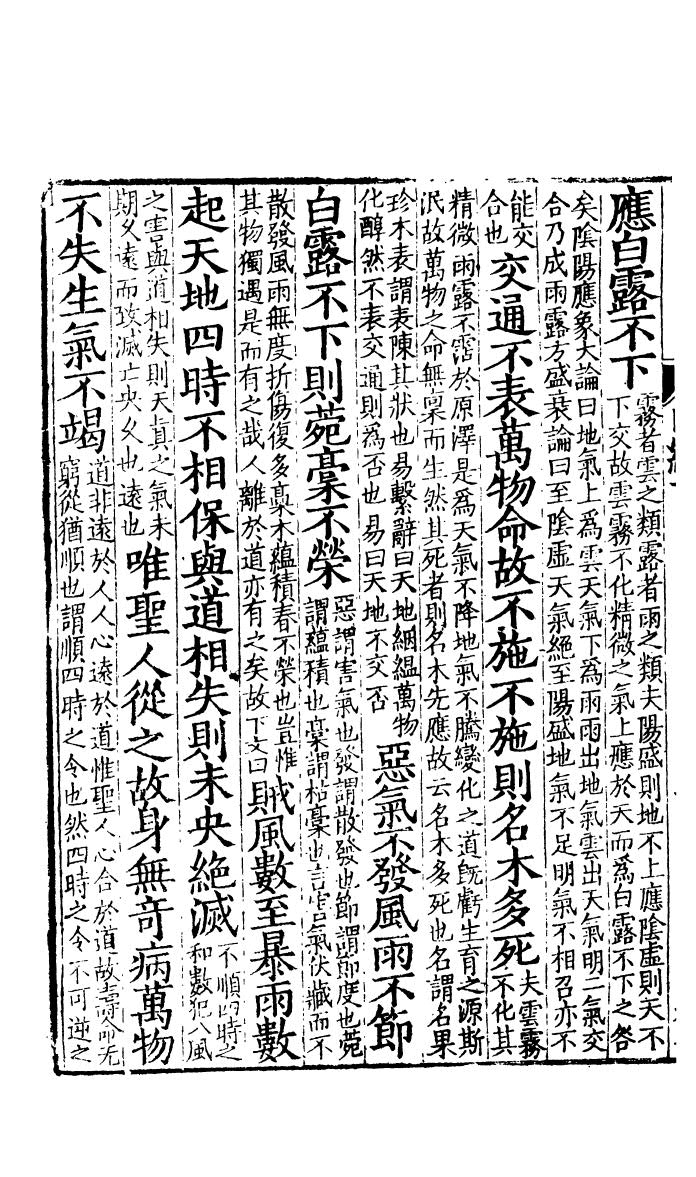 應白露不下
霧者雲之類露者雨之類夫陽盛則地不上應陰虛則天不
下交故雲霧不化精微之氣上應於天而為白露不下之咎
矣陰陽應象大論曰地氣上為雲天氣下為雨雨出地氣雲出天氣明二氣交
合乃成雨露方盛衰論曰至陰虛天氣絕至陽盛地氣不足明氣不相召亦不
能交
合也
交通不表萬物命故不施不施則名木多死
夫雲霧
不化其
精微雨露不霑於原澤是為天氣不降地氣不騰變化之道旣虧生育之源斯
泯故萬物之命無稟而生然其死者則名木先應故云名木多死也名謂名果
珍木表謂表陳其狀也易繫辭曰天地絪縕萬物
化醇然不表交通則為否也易曰天地不交否
惡氣不發風雨不節
白露不下則菀槀不榮
惡謂害氣也發謂散發也節謂節度也菀
謂蘊積也槀謂枯槀也言害氣伏藏而不
散發風雨無度折傷復多槀木蘊積春不榮也豈惟
其物獨遇是而有之哉人離於道亦有之矣故下文曰
賊風數至暴雨數
起天地四時不相保與道相失則未央絕滅
不順四時之
和數犯八風
之害與道相失則天真之氣未
期久遠而致滅亡央久也遠也
唯聖人從之故身無奇病萬物
不失生氣不竭
道非遠於人人心遠於道惟聖人心合於道故壽命无
窮從猶順也謂順四時之令也然四時之令不可逆之